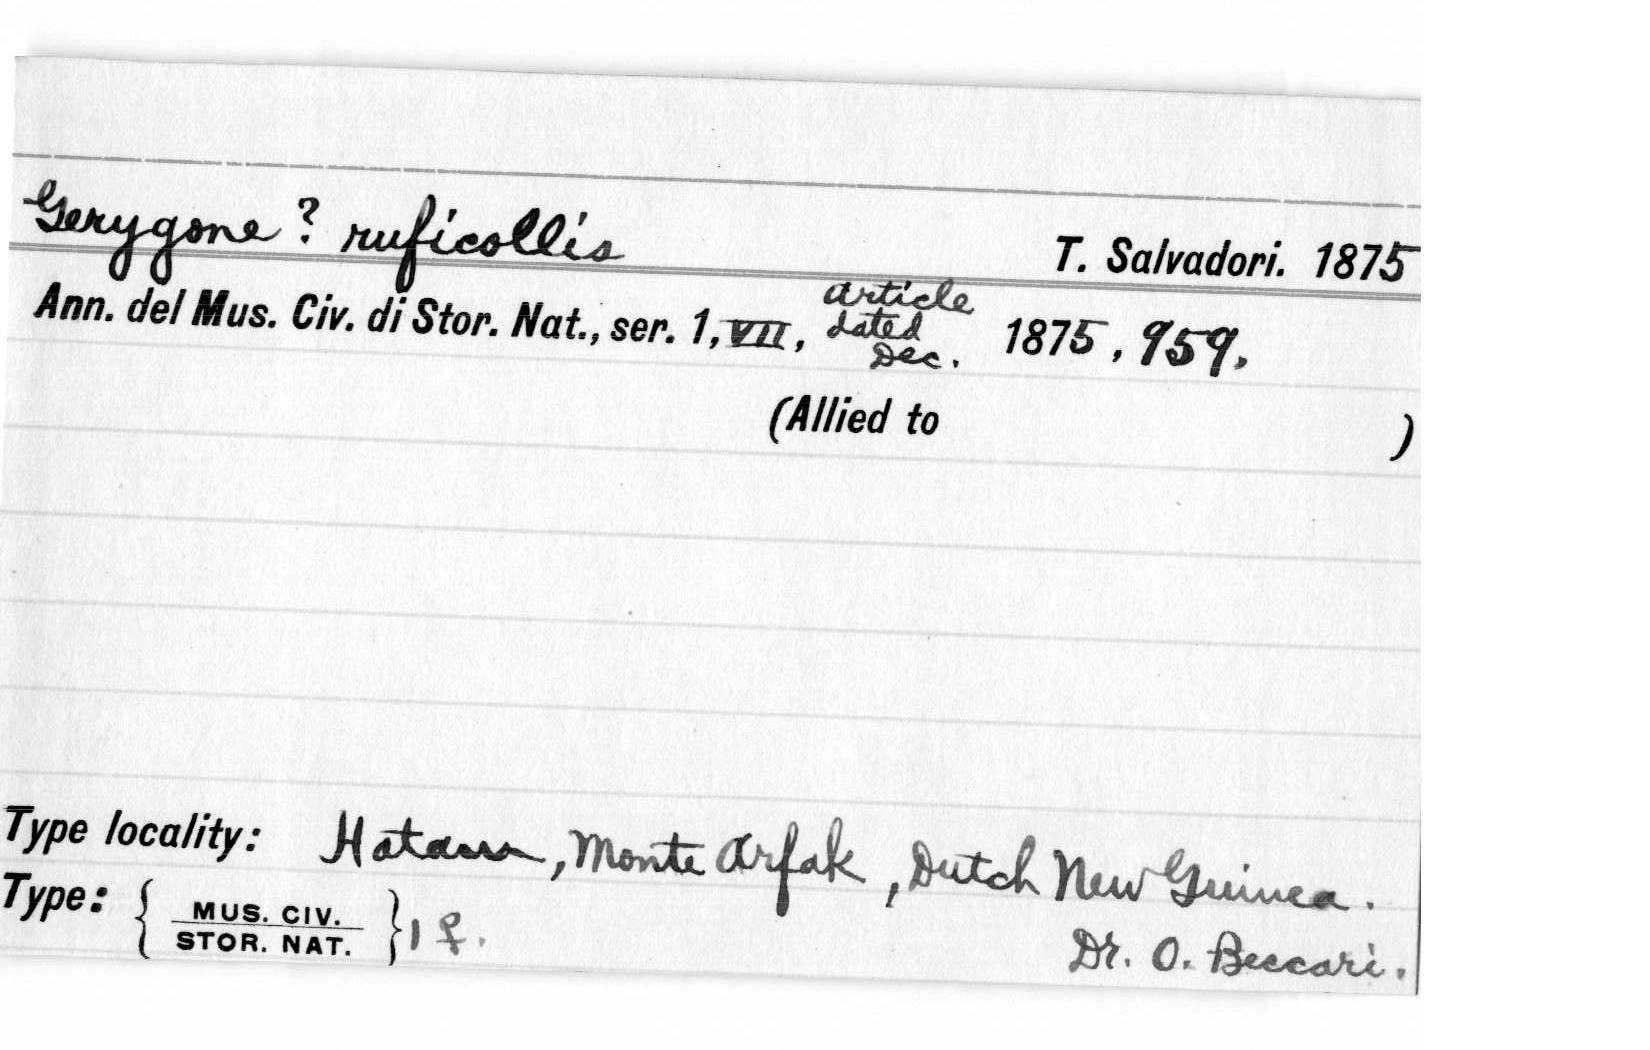 Gerygone ? ruficollis
T. Salvadori. 1875
Ann. del Mus. Civ. di Stor. Nat., ser. 1, VII, article dated Dec. 1875, 959.
(Allied to )
Type locality: Hatam, Monte Arfak, Dutch New Guinea.
Type: { MUS. CIV. STOR. NAT. } 1 ♀.
Dr. O. Beccari.